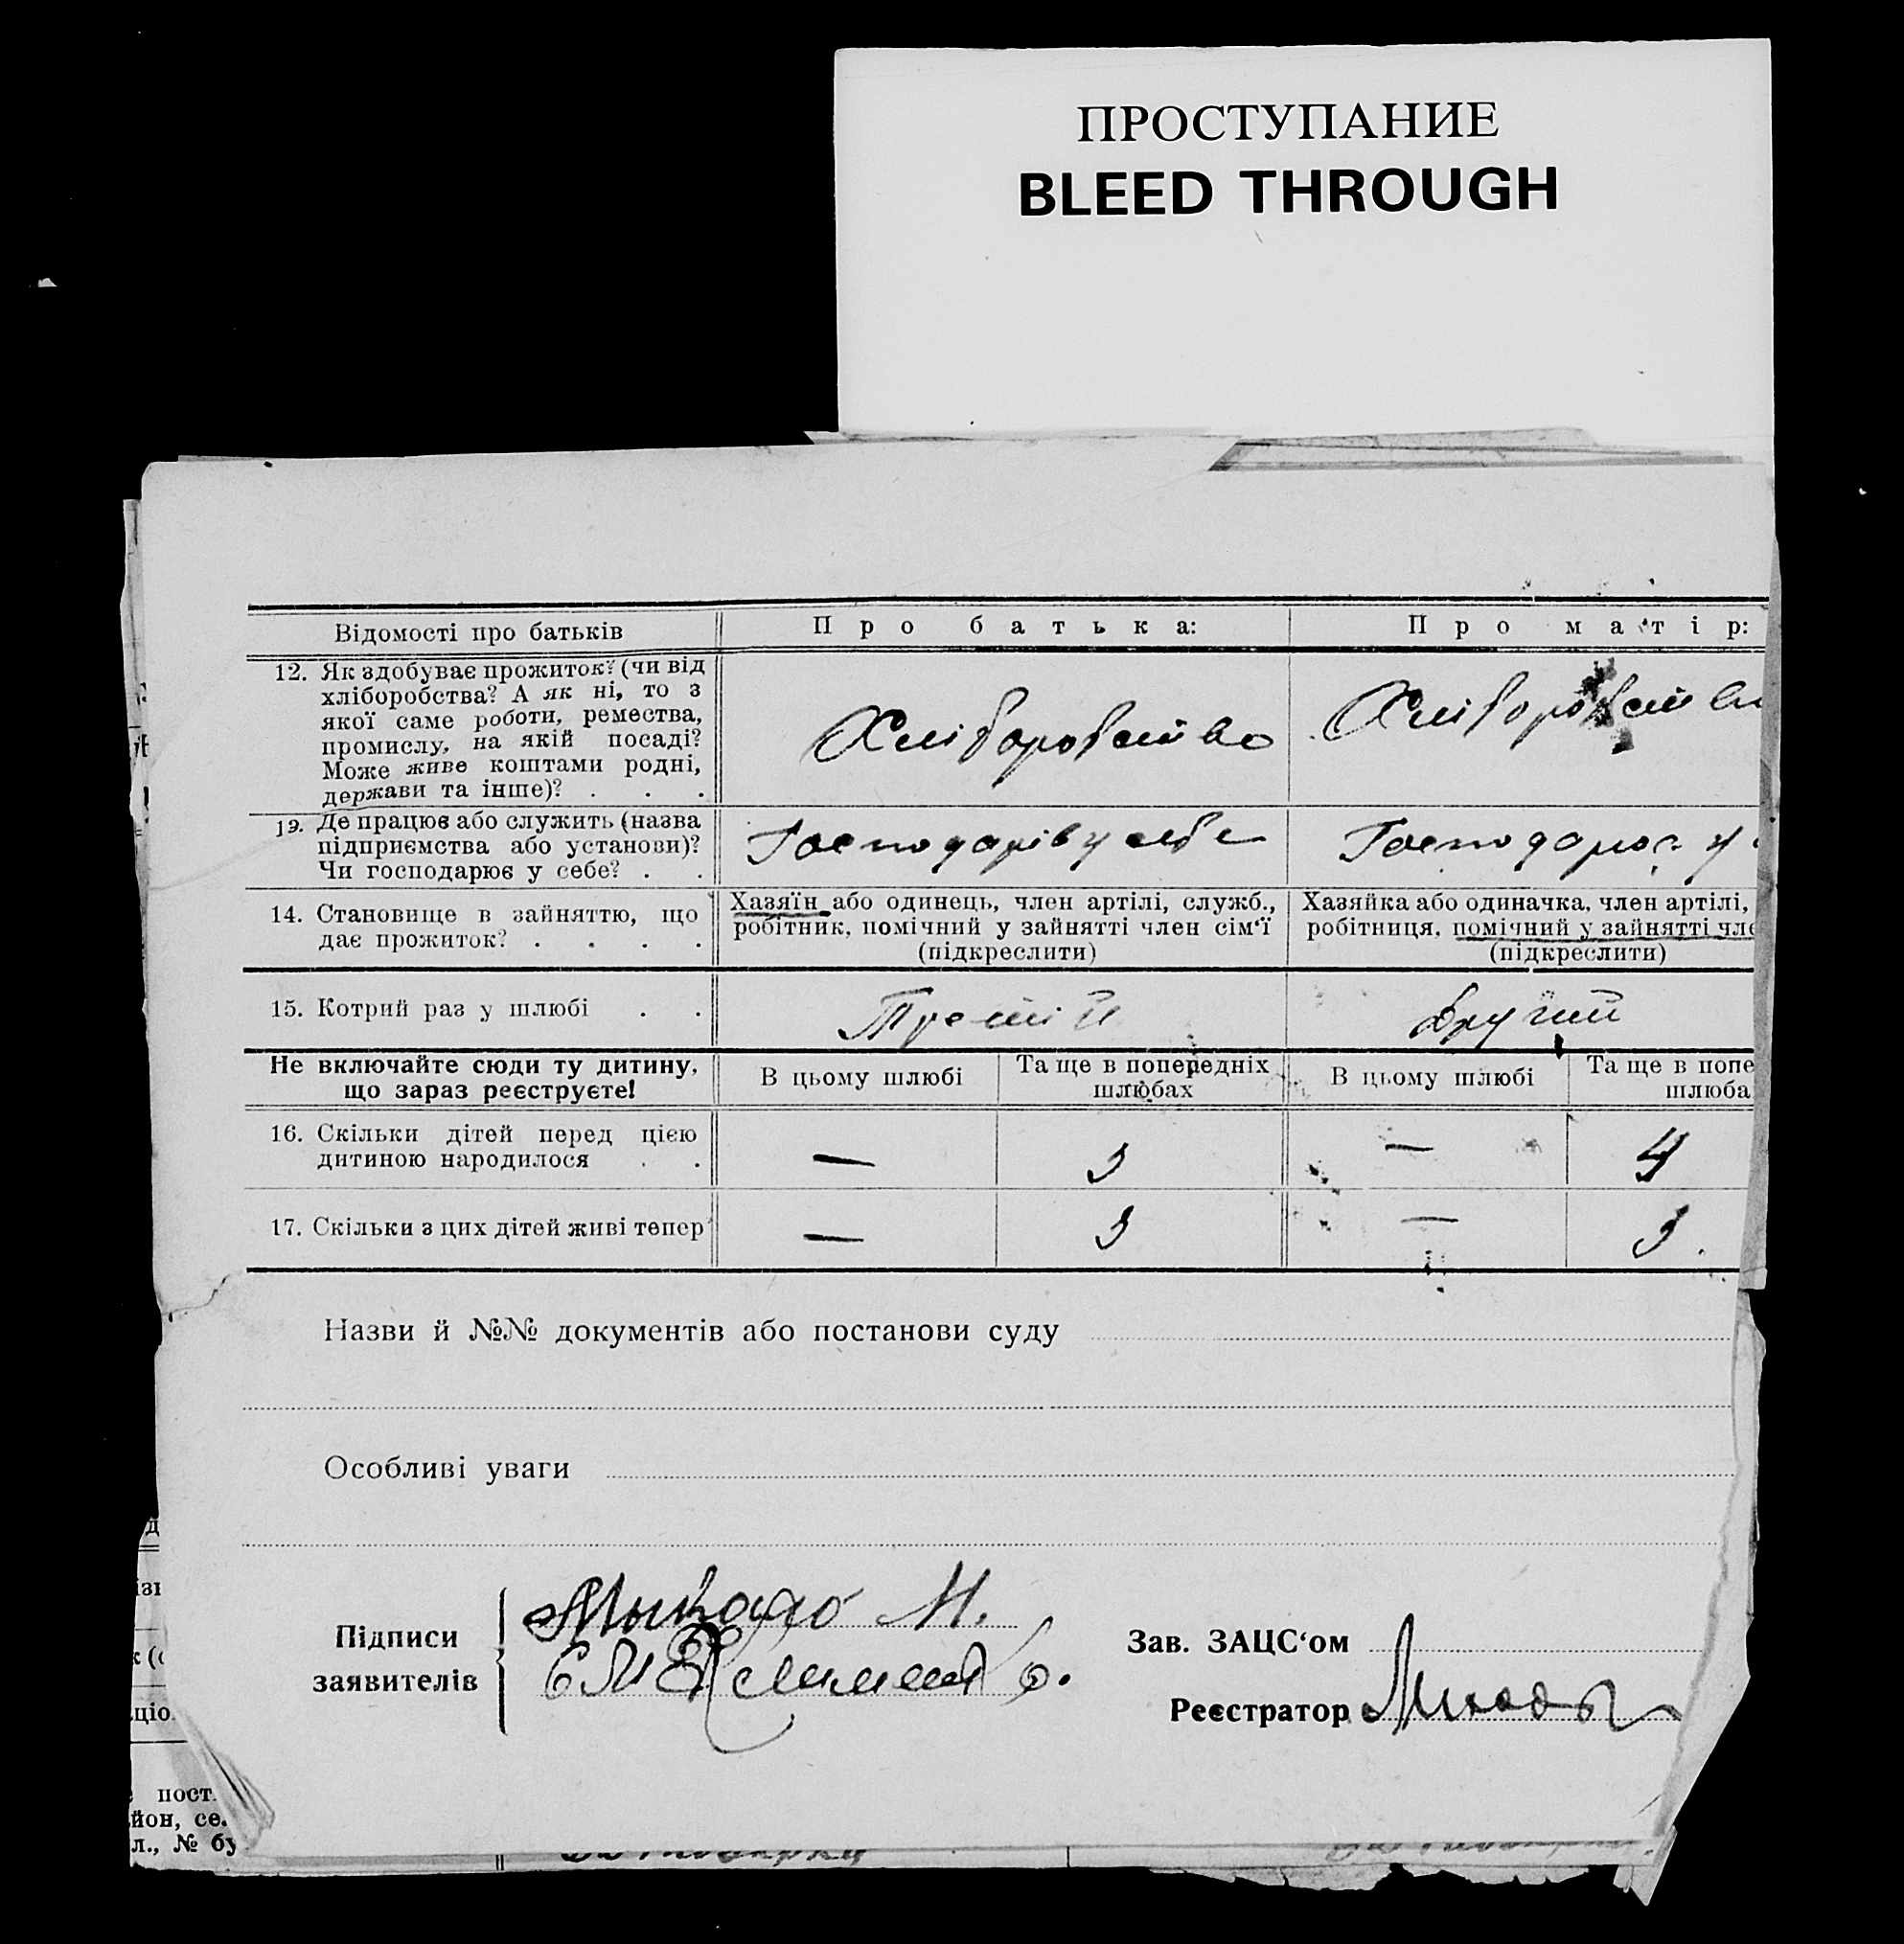 ПРОСТУПАНИЕ
BLEED THROUGH
Відомості про батьків
Про батька:
Про матір:
12. Як здобуває прожиток? (чи від
хліборобства? А як ні, то з
якої саме роботи, ремества,
промислу, на якій посаді?
Може живе коштами родні,
держави та інше)? . . .
Хліборобство
Хліборобство
13. Де працює або служить (назва
підприємства або установи)?
Чи господарює у себе? . .
Господарів у себе
Господарює у
14. Становище в зайняттю, що
дає прожиток? . . . .
Хазяїн або одинець, член артілі, служб.,
робітник, помічний у зайнятті член сім‘ї
(підкреслити)
Хазяйка або одиначка, член артілі,
робітниця, помічний у зайнятті чле
(підкреслити)
15. Котрий раз у шлюбі . .
Третій
Другий
Не включайте сюди ту дитину,
що зараз реєструєте!
В цьому шлюбі
Та ще в попередніх
шлюбах
В цьому шлюбі
Та ще в попе
шлюба
16. Скільки дітей перед цією
дитиною народилося . .
—
3
—
4
17. Скільки з цих дітей живі тепер
—
3
—
3.
Назви й №№ документів або постанови суду
Особливі уваги
Підписи
заявителів
М.
Зав. ЗАЦС‘ом
Реєстратор
пост.
йон, се.
л., № бу